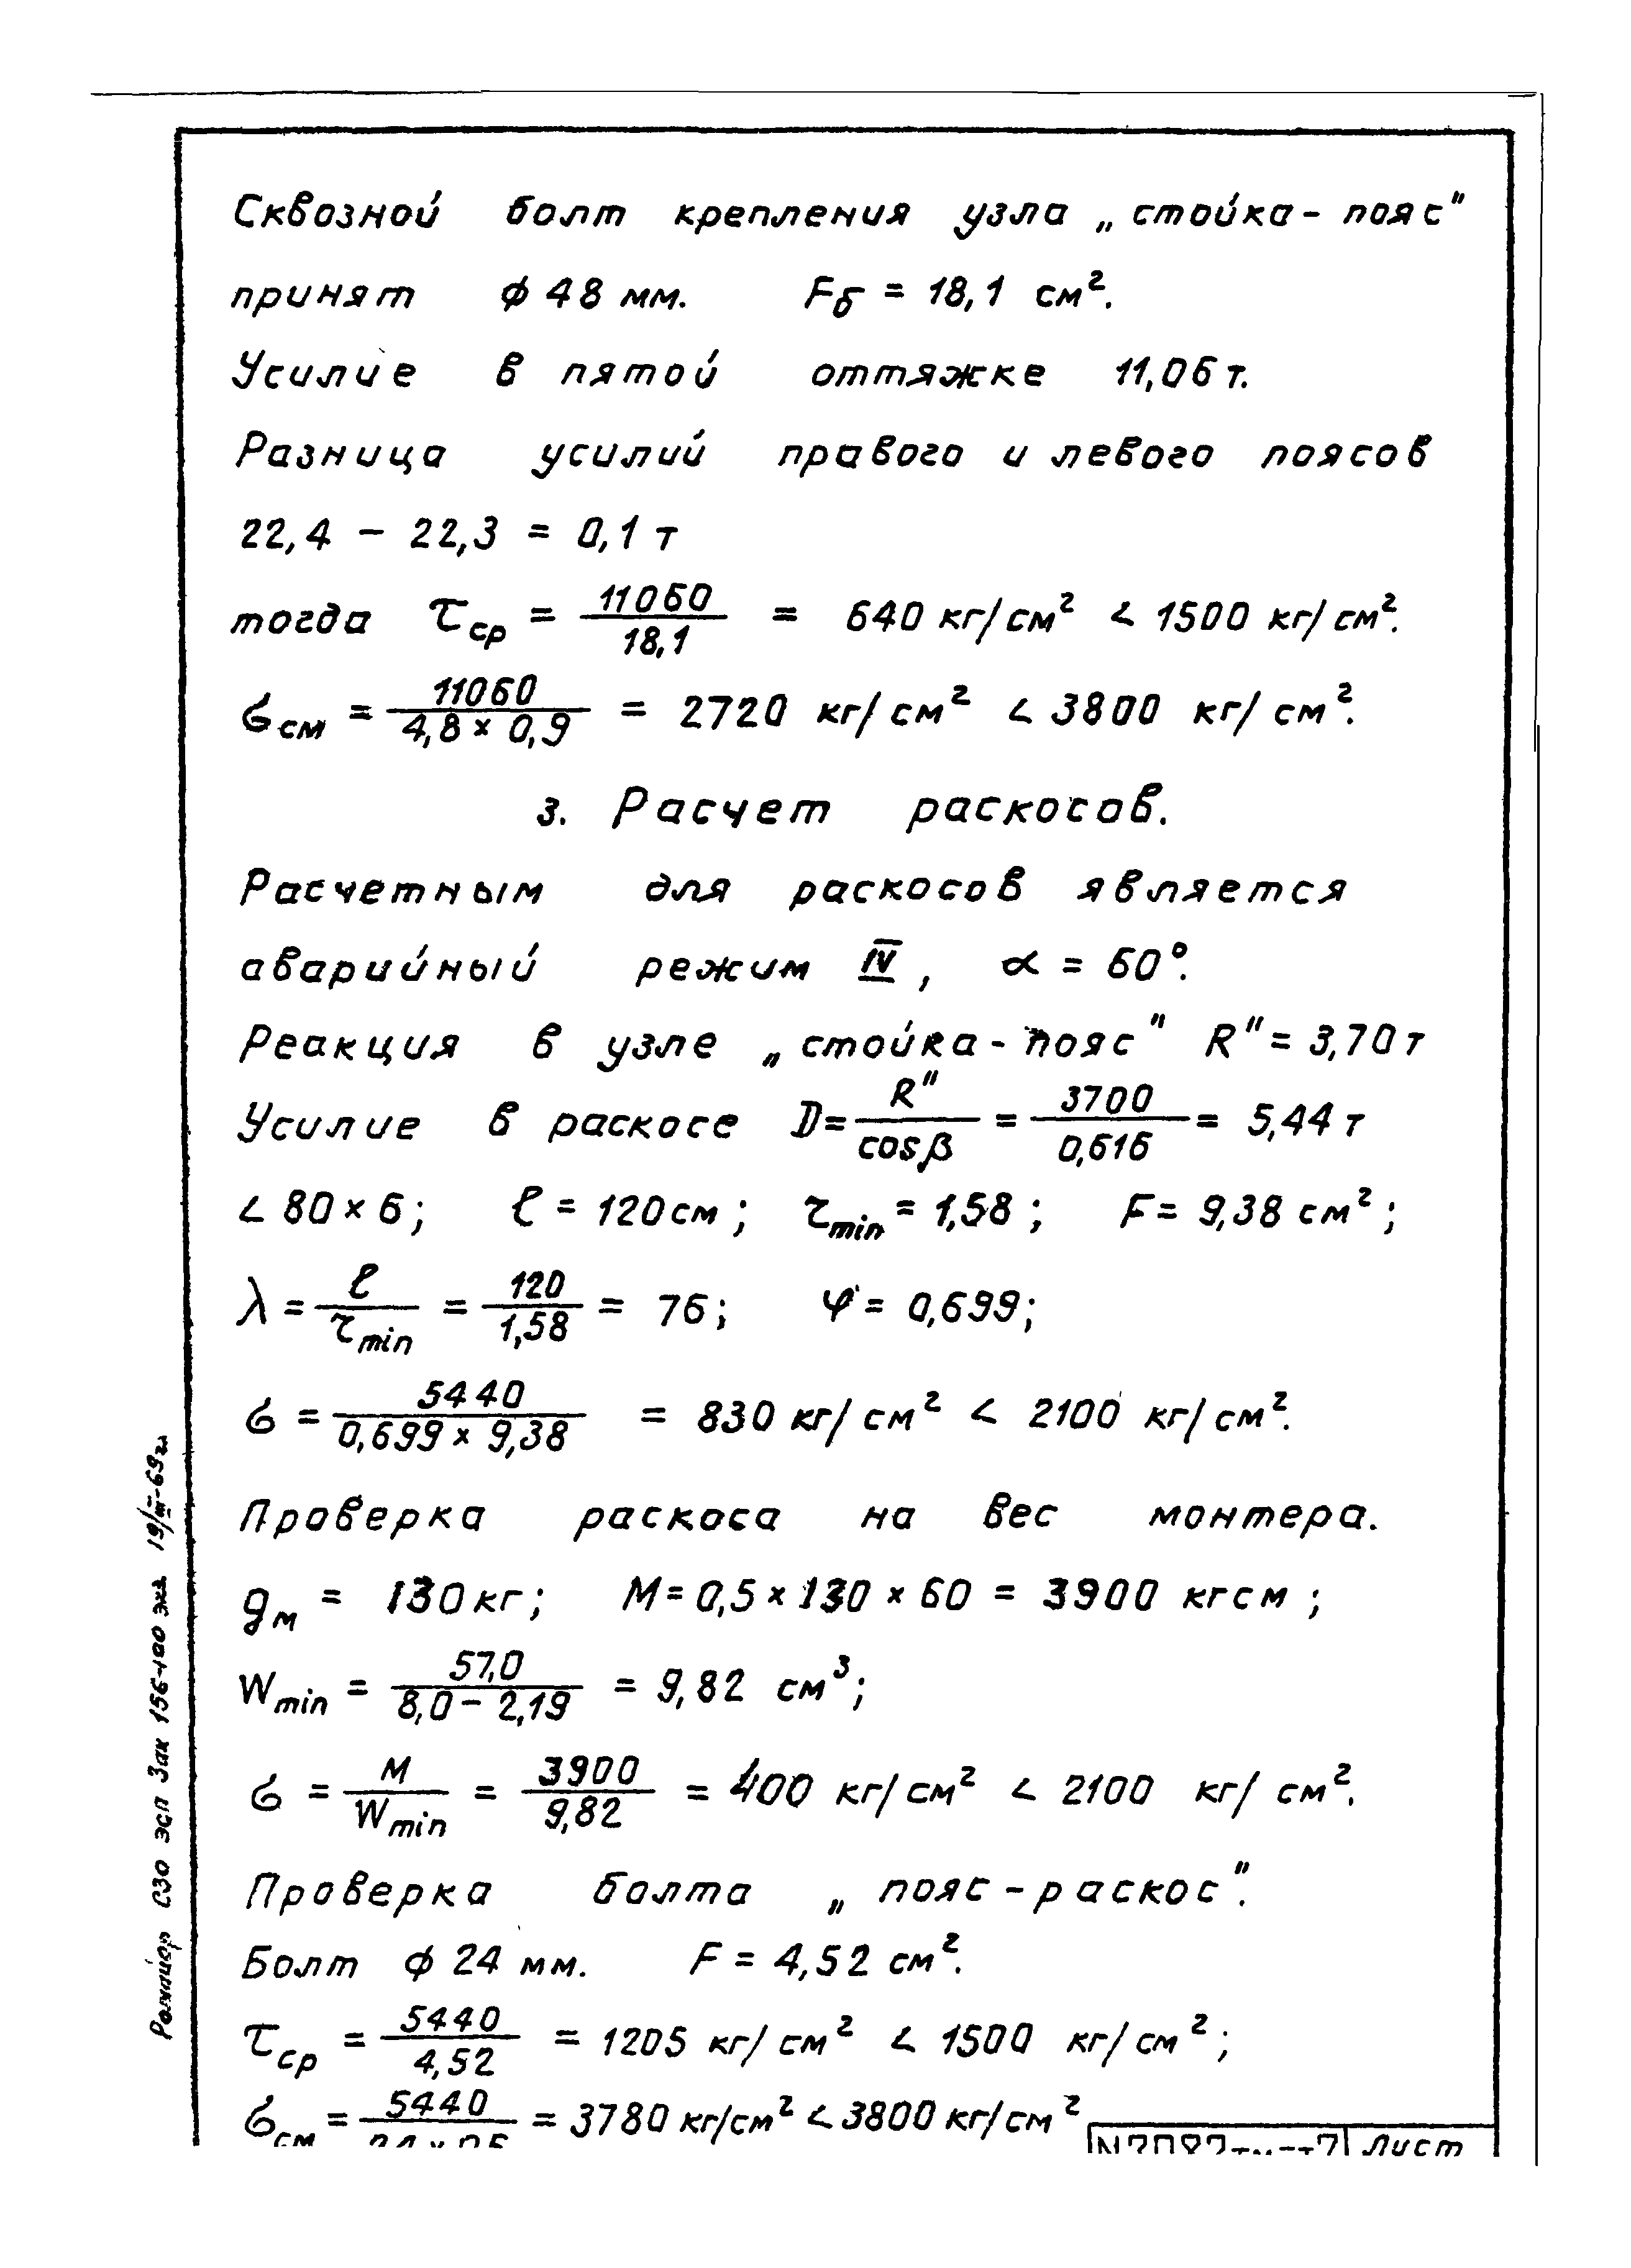 Сквозной болт крепления узла „стойка - пояс"
принят ϕ 48 мм. Fб = 18,1 см².
Усилие в пятой оттяжке 11,06 т.
Разница усилий правого и левого поясов
22,4 - 22,3 = 0,1 т
тогда τср = 11060 / 18,1 = 640 кг/см² < 1500 кг/см².
σсм = 11060 / 4,8 × 0,9 = 2720 кг/см² < 3800 кг/см².
3. Расчет раскосов.
Расчетным для раскосов является
аварийный режим IV, α = 60°.
Реакция в узле „стойка - пояс" R" = 3,70 т
Усилие в раскосе D = R" / cosβ = 3700 / 0,616 = 5,44 т
∠ 80 × 6; ℓ = 120 см; τmin = 1,58; F = 9,38 см²;
λ = ℓ / τmin = 120 / 1,58 = 76; φ = 0,699;
σ = 5440 / 0,699 × 9,38 = 830 кг/см² < 2100 кг/см².
Проверка раскоса на вес монтера.
gм = 130 кг; M = 0,5 × 130 × 60 = 3900 кгсм;
Wmin = 57,0 / 8,0 - 2,19 = 9,82 см³;
σ = M / Wmin = 3900 / 9,82 = 400 кг/см² < 2100 кг/см².
Проверка болта „пояс - раскос".
Болт ϕ 24 мм. F = 4,52 см².
τср = 5440 / 4,52 = 1205 кг/см² < 1500 кг/см²;
σсм = 5440 / = 3780 кг/см² < 3800 кг/см²
Лист
СЗО ЭСП Зак 156-100 экз 19/III-69г.